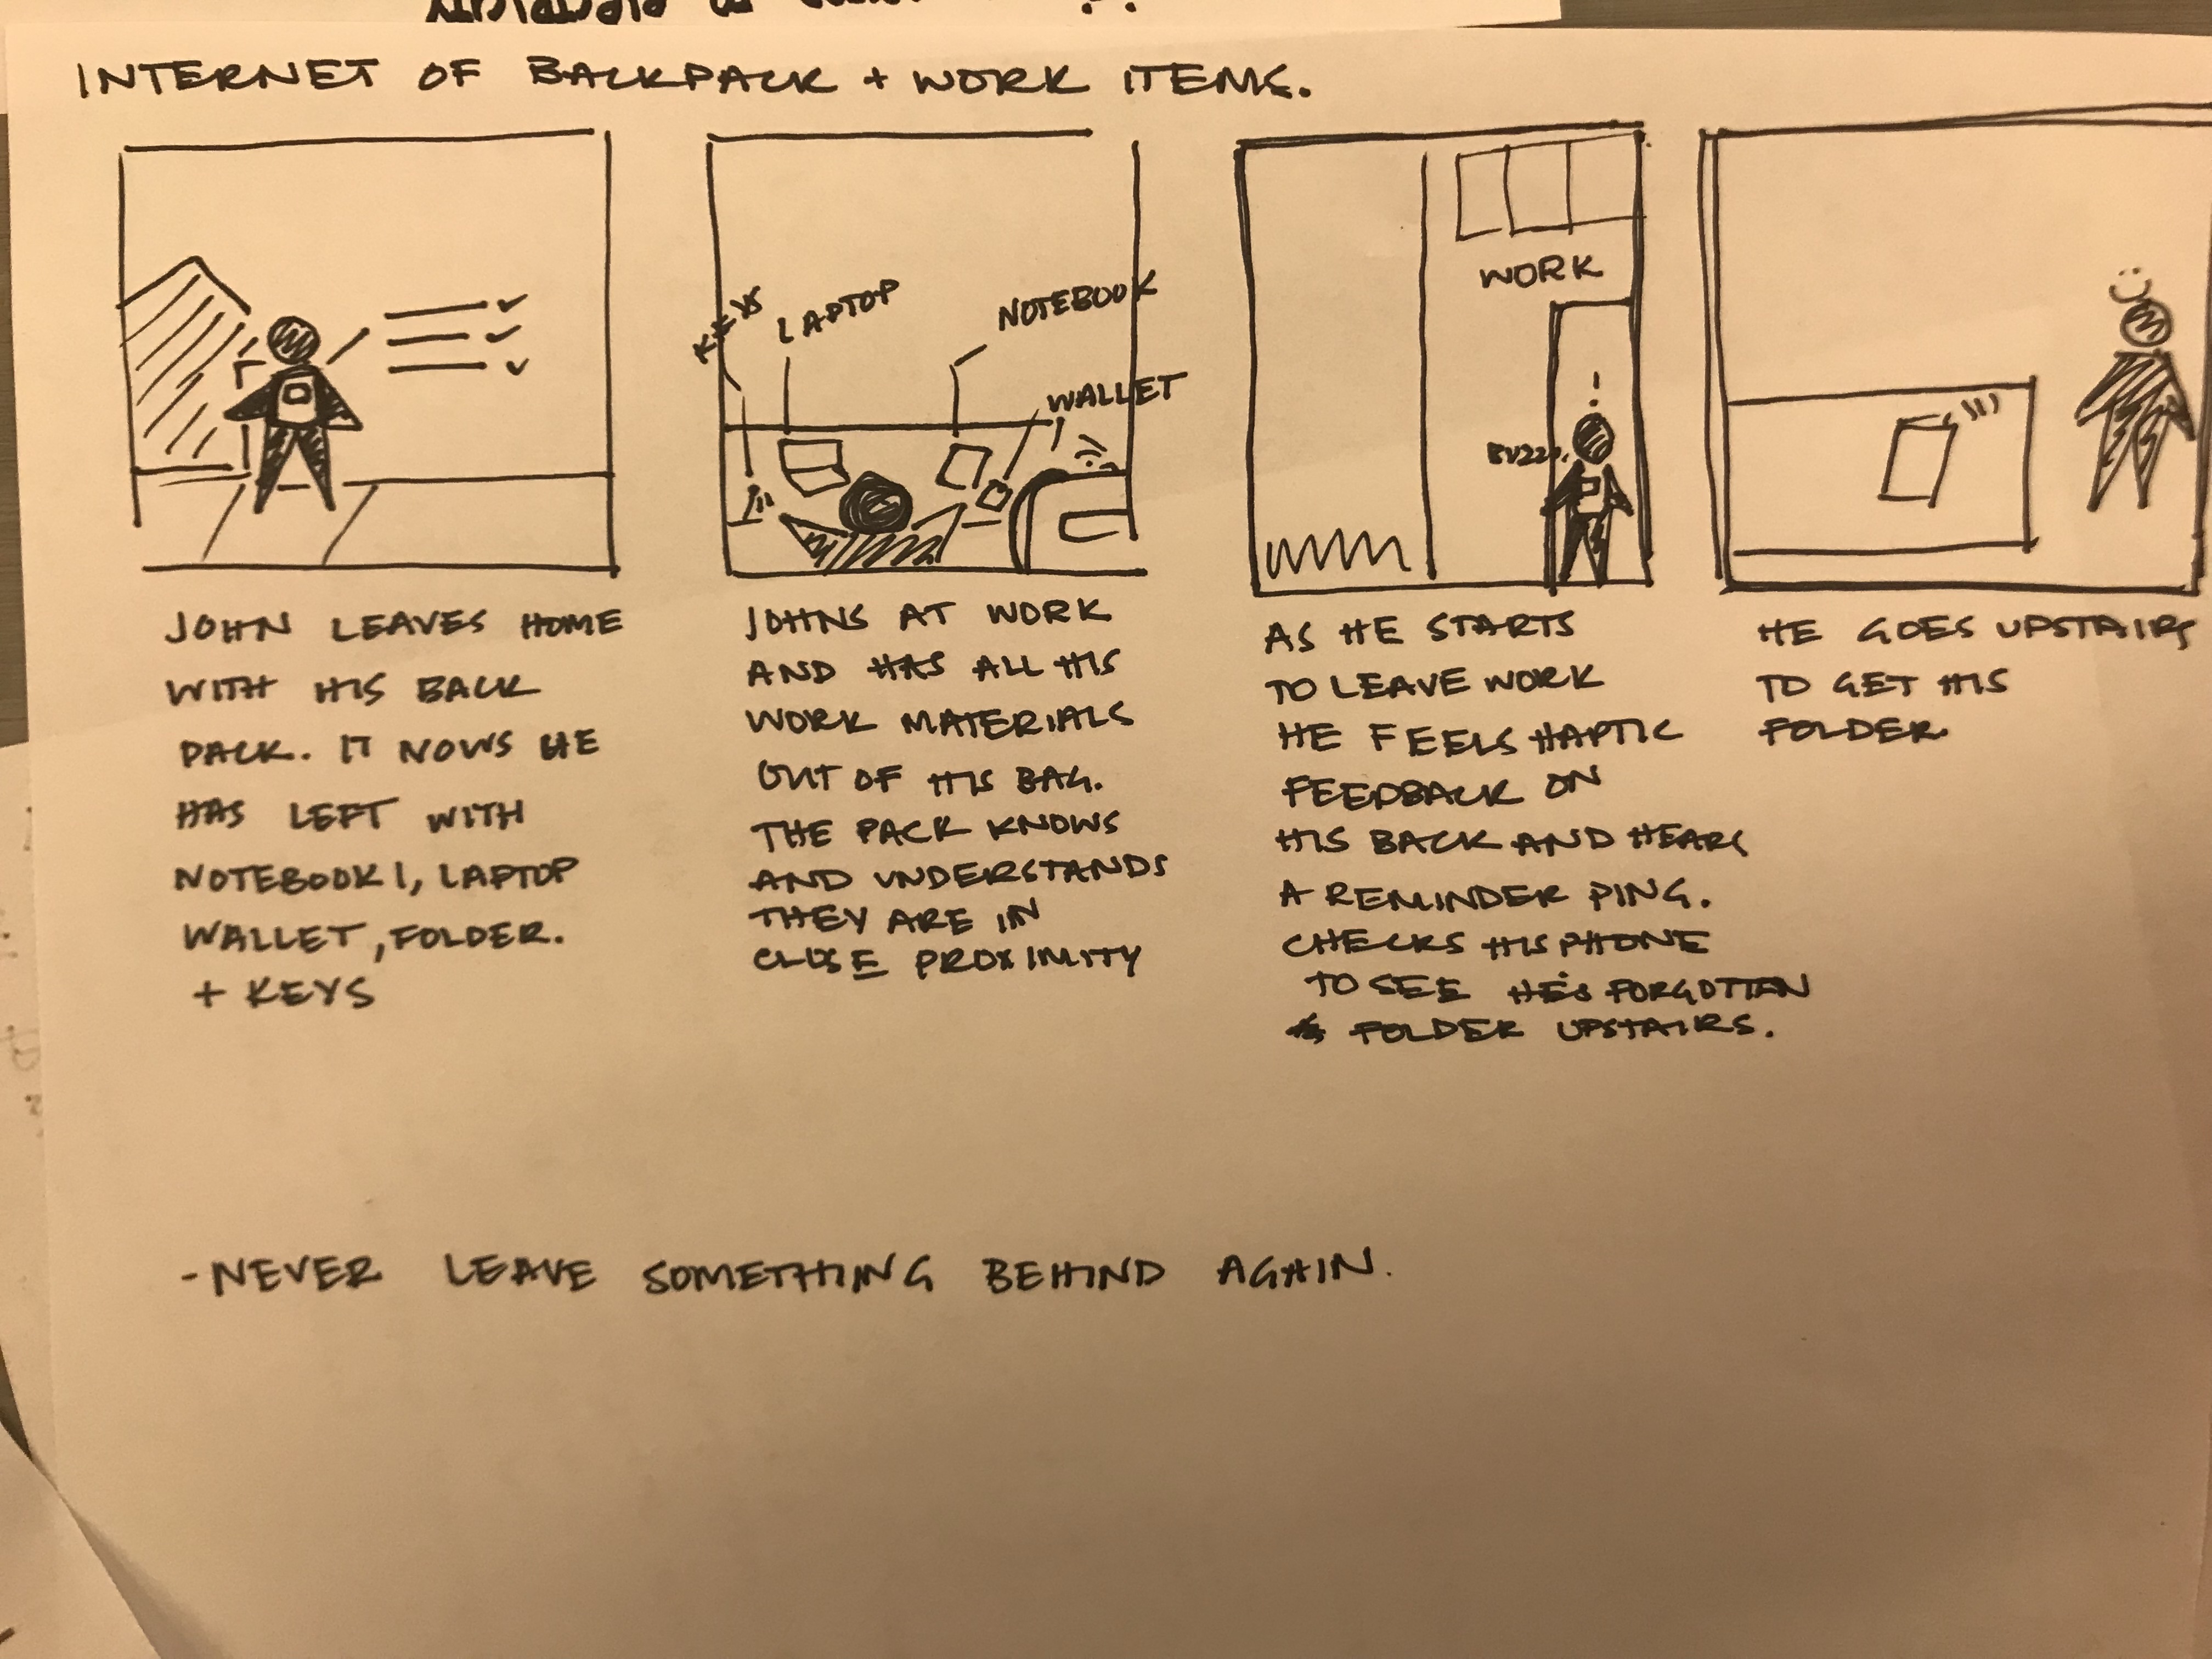 INTERNET OF BACKPACK + WORK ITEMS.
KEYS
LAPTOP
NOTEBOOK
WALLET
WORK
BUZZZ.
JOHN LEAVES HOME
WITH HIS BACK
PACK. IT NOWS HE
HAS LEFT WITH
NOTEBOOK 1, LAPTOP
WALLET, FOLDER.
+ KEYS
JOHNS AT WORK
AND HAS ALL HIS
WORK MATERIALS
OUT OF HIS BAG.
THE PACK KNOWS
AND UNDERSTANDS
THEY ARE IN
CLOSE PROXIMITY
AS HE STARTS
TO LEAVE WORK
HE FEELS HAPTIC
FEEDBACK ON
HIS BACK AND HEARS
A REMINDER PING.
CHECKS HIS PHONE
TO SEE HE'S FORGOTTEN
FOLDER UPSTAIRS.
HE GOES UPSTAIRS
TO GET HIS
FOLDER.
- NEVER LEAVE SOMETHING BEHIND AGAIN.